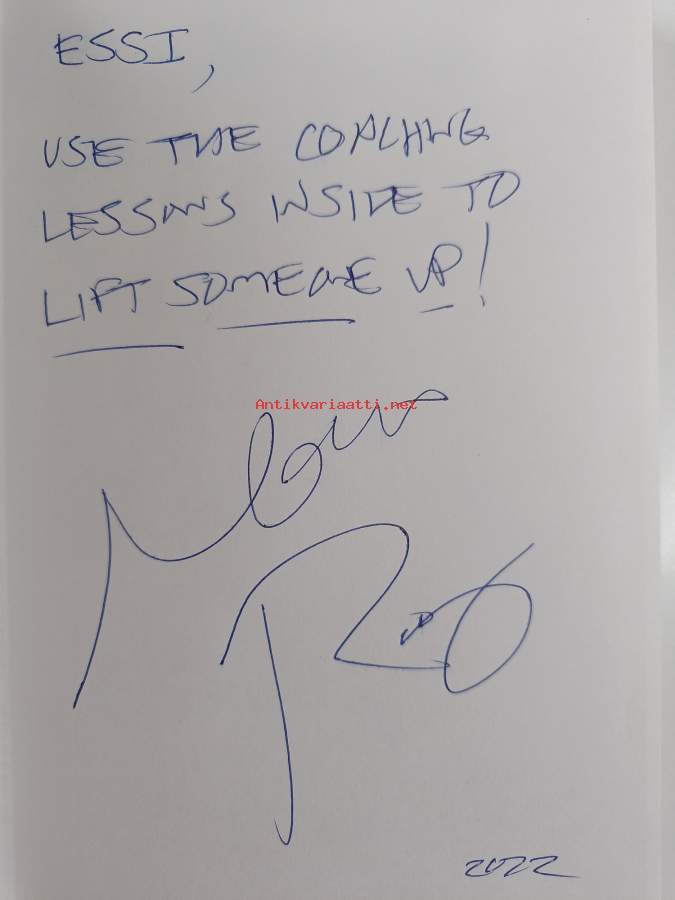 ESSI,
USE THE COACHING
LESSONS INSIDE TO
LIFT SOMEONE UP!
Antikvariaatti.net
2022